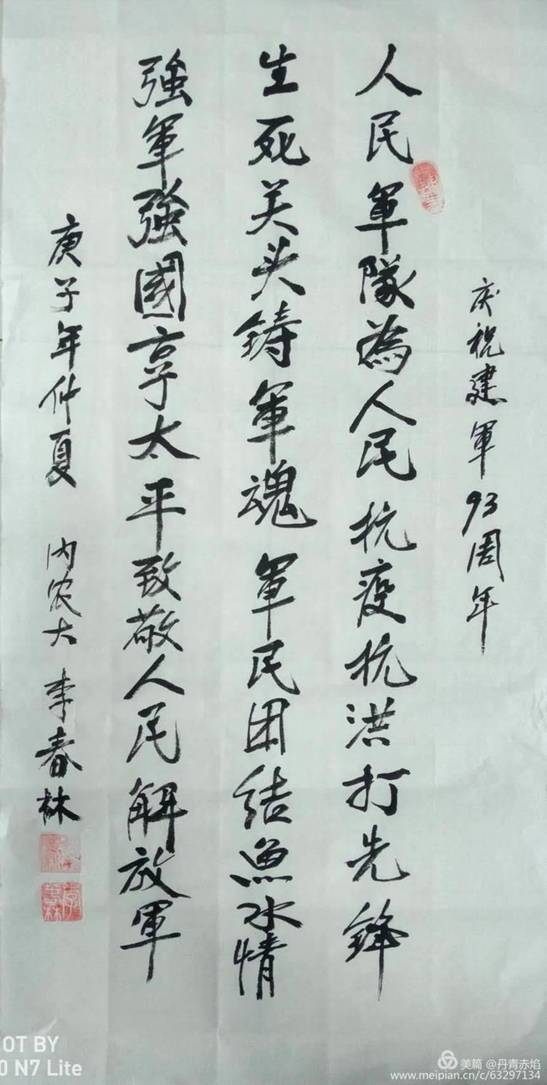 庆祝建軍93周年
人民軍隊為人民抗疫抗洪打先鋒
生死关头鋳軍魂軍民团结魚水情
強軍強國享太平致敬人民解放軍
庚子年仲夏 内农大 李春林
OT BY
0 N7 Lite
美篇 @丹青赤焰
www.meipian.cn/c/63297134